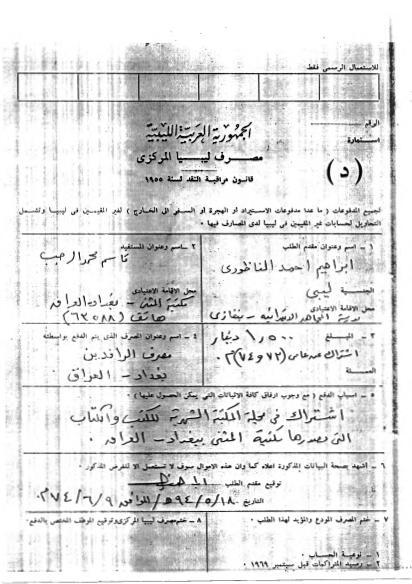 للاستعمال الرسمى فقط
الرقم
الجمهورية العربية الليبية
استمارة
مصرف ليبيا المركزى
(د)
قانون مراقبة النقد لسنة ١٩٥٥
لجميع المدفوعات ( ما عدا مدفوعات الاستيراد أو الهجرة أو السفر الى الخارج ) لغير المقيمين فى ليبيا وتشمل
التحاويل لحسابات غير المقيمين فى ليبيا لدى المصارف فيها •
١ – اسم وعنوان مقدم الطلب
ابراهيم احمد
الجنسية ليبي
محل الاقامة الاعتيادى
– بنغازى
٢ – اسم وعنوان المستفيد
قاسم محمد الرجب
محل الاقامة الاعتيادى
مكتبة المثنى – بغداد العراق
هاتف (٦٣٥٨٨)
٣ – المبلغ ١٫٥٠٠ دينار
اشتراك عن عامى (٧٣ و ٧٤) م
العملة
٤ – اسم وعنوان المصرف الذى يتم الدفع بواسطته
مصرف الرافدين
بغداد – العراق
٥ – اسباب الدفع ( مع وجوب ارفاق كافة الاثباتات التى يمكن الحصول عليها )
اشتراك فى مجلة المكتبة الشهرية للكتب والكتاب
التى تصدرها مكتبة المثنى ببغداد – العراق •
٦ – اشهد بصحة البيانات المذكورة اعلاه كما وان هذه الاموال سوف لا تستعمل الا للغرض المذكور •
توقيع مقدم الطلب
التاريخ ٩٤/٥/١٨ هـ الموافق ٧٤/٦/٩ م
٧ – ختم المصرف المودع والمؤيد لهذا الطلب •
٨ – ختم مصرف ليبيا المركزى وتوقيع الموظف المختص بالدفع •
١ – نوعية الحساب
٢ – رصيد المتراكمات قبل سبتمبر ١٩٦٩